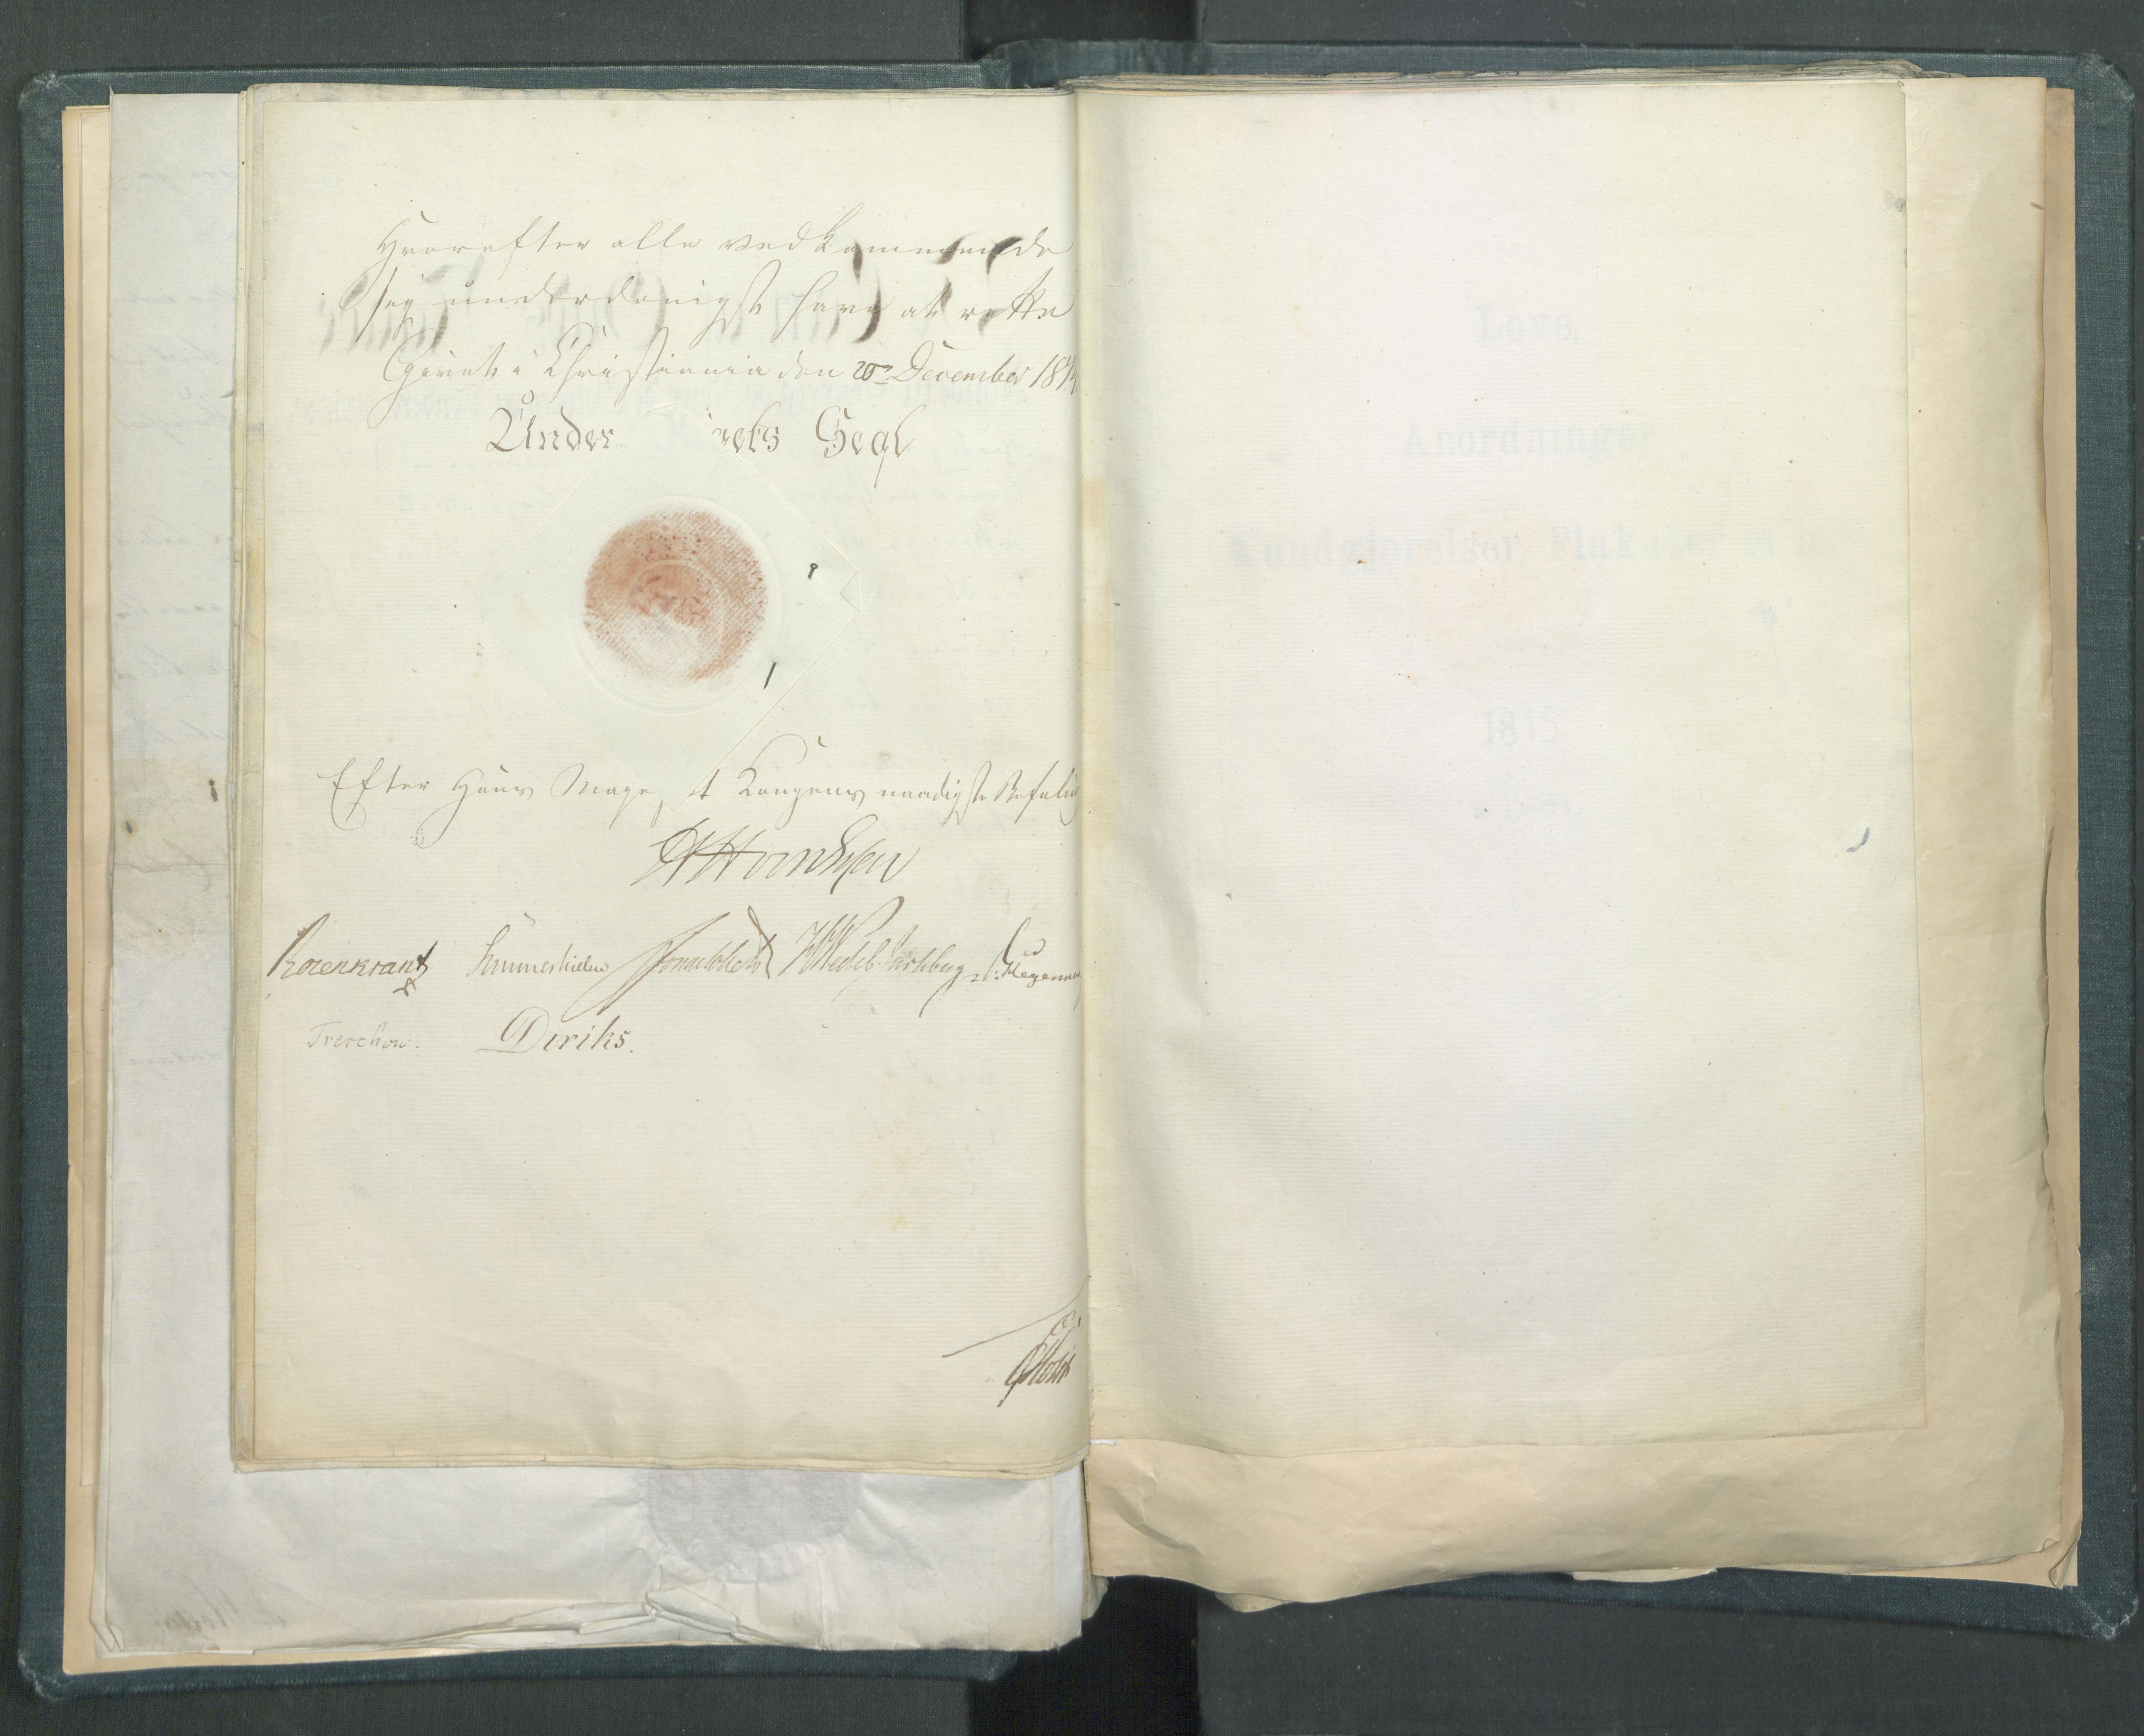 Hvorefter alle vedkommende
sig underdanigst have at rette
Givet i Christiania den 20de December 1814
Under ets Segl
Efter Hans Maye t Kongens naadigste Befaling
Rosenkrantz Sommerhielm Wedel Jarlsberg
Treschow. Diriks.
Love,
Anordninger
Kundgjørelser Plakater m.m.
1815